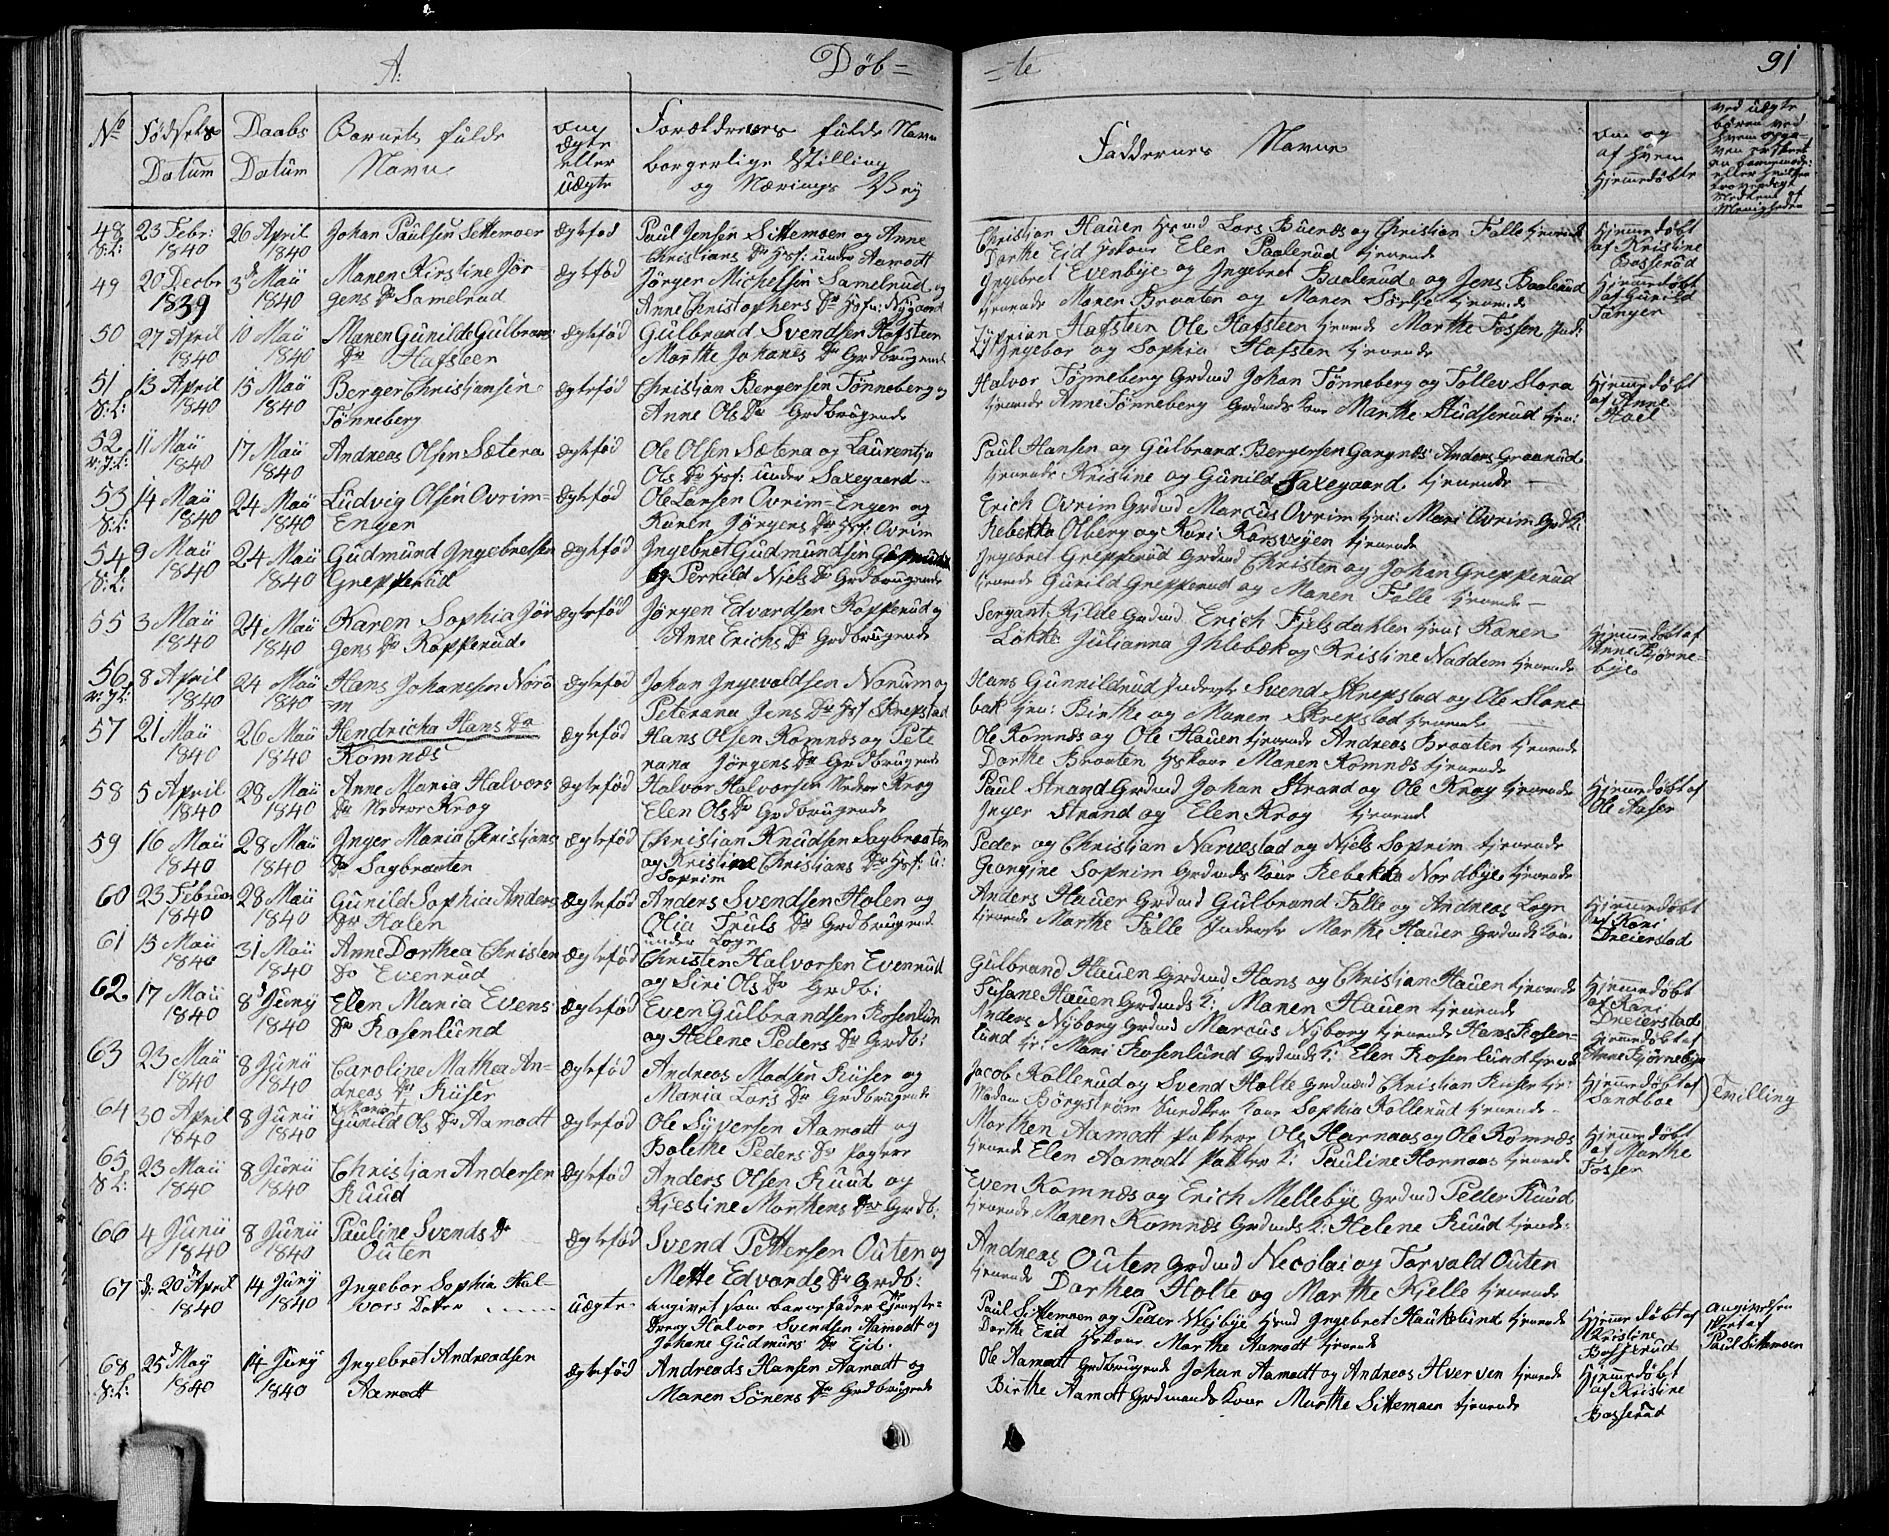 A. Døb= =te 91
No Fødsels Datum
Daabs Datum
Barnets fulde Navn
om ægte eller uægte
Forældrenes fulde Navn borgerlige Stilling og Nærings Vei
Faddernes Navne
om og af hvem hjemmedøbte
48 23 Febr: 1840 26 April 1840 Johan Paulsen Settemoer ægtefød Paul Jensen Sittemoen og Anne
Christians Dr Hsf: under Aamodt
Christian Hauen Lars Buenæs og Christian Falle tjenende
Dorthe Eid Elen Paalerud tjenende
Hjemmedøbt af Kristine Bosserud
49 20 Decbr 1839 3d Maii 1840 Maren Kirstine Jør-
gens Dr Samelrud ægtefød Jørger Michelsen Samelrud og
Anne Christophers Dr Hsf: Nygaard
Ingebret Evenbye og Ingebret Baalerud og Jens Baalerud
tjenende Maren Braaten og Maren Sørlje tjenende
Hjemmedøbt af Gunild Tanger
50 27 April 1840 10 Maii 1840 Maren Gunilde Gulbrans
Dr Hafsteen ægtefød Gulbrand Svendsen Hafsteen
Marthe Johanes Dr Grdbrugende
Zyprian Hafsteen Ole Hafsteen tjenende Marthe Fossen Inds:
Ingebor og Sophia Hafsten tjenende
51 S:L: 13 April 1840 15 Maii 1840 Berger Christiansen
Tønneberg ægtefød Christian Bergersen Tønneberg og
Anne Ols Dr Grdbrugende
Halvor Tønneberg Grdmd Johan Tønneberg og Tollev Slora
tjenende Anne Tønneberg Grdmds Kone Marthe Studserud tjen:
Hjemmedøbt af Anne Hoel
52 11 Maii 1840 17 Maii 1840 Andreas Olsen Sætera ægtefød Ole Olsen Sætera og Laurentja
Ols Dr Hsf: under Saxegaard
Paul Hansen og Gulbrand Bergersen Gangnæs Anders Graarud
tjenende Kristine og Gunild Saxegaard tjenende
53 S:L: 14 Maii 1840 24 Maii 1840 Ludvig Olsen Ovrim=
Enger ægtefød Ole Larsen Ovrim-Enger og
Karen Jørgens Dr Hsf: Ovrim
Erich Ovrim Grdmd Marcus Ovrim tjen: Mari Ovrim Grdk:
Rebekka Olberg og Kari Korsvejen tjenende
54 S:L: 9 Maii 1840 24 Maii 1840 Gudmund Ingebretsen
Grepperud ægtefød Ingebret Gudmundsen
og Pernild Niels Dr Grdbrugende
Ingebret Grepperud Grdmd Christen og Johan Grepperud
tjenende Gunild Grepperud og Maren Falle tjenende
55 3 Maii 1840 24 Maii 1840 Karen Sophia Jør
gens Dr Kopperud ægtefød Jørgen Edvardsen Kopperud og
Anne Erichs Dr Grdbrugende
Sergant: Kjilde Grdmd Erich Fjelsdahlen tjen: Karen
Løkke Julianna Ihlebæk og Kristine Naddem tjenende
Hjemmedøbt af Anne Kjørnebye
56 8 April 1840 24 Maii 1840 Hans Johansen Noru
m ægtefød Johan Ingevaldsen Norum og
Peterana Jens Dr Hsf Skrepstad
Hans Gunnildrud Inderste Svend Skrepstad og Ole Slore
bak tjen: Birthe og Maren Skrepstad tjenende
57 21 Maii 1840 26 Maii 1840 Hendricka Hans Dr
Komnæs ægtefød Hans Olsen Komnæs og Pete
rana Jørgens Dr Grdbrugende
Ole Komnæs og Ole Hauen tjenende Andreas Braaten tjenende
Dorthe Braaten Hskone Maren Komnæs tjenende
58 5 April 1840 28 Maii 1840 Anne Maria Halvors
Dr Nedver Krog ægtefød Halvor Halvorsen Nedver Krog
Elen Ols Dr Grdbrugende
Paul Strand Grdmd Johan Strand og Ole Krog tjenende
Inger Strand og Elen Krog tjenende
Hjemmedøbt af Ole Aaser
59 16 Maii 1840 28 Maii 1840 Inger Maria Christians
Dr Sagbraaten ægtefød Christian Knudsen Sagbraaten
og Kristine Christians Dr Hsf: u:
Soprim
Peder og Christian Narvestad og Niels Soprim tjenende
Grongine Soprim Grdmds Kone Rebekka Nordbye tjenende
60 23 Februar 1840 28 Maii 1840 Gunild Sophia Anders
Dr Holen ægtefød Anders Svendsen Holen og
Olia Truls Dr Grdbrugende
under Logn
Anders Hauer Grdmd Gulbrand Falle og Andreas Logn
tjenende Marthe Falle Inderste Marthe Hauer Grdmds Kone
Hjemmedøbt af Kari Dreierstad
61 15 Maii 1840 31 Maii 1840 Anne Dorthea Christen
Dr Evenrud ægtefød Christen Halvorsen Evenrud
og Siri Ols Dr Grdb:
Gulbrand Hauen Grdmd Hans og Christian Hauen tjenende
Susane Hauen Grdmds K: Maren Hauen tjenende
Hjemmedøbt af Kari Dreierstad
62 17 Maii 1840 8d Juny 1840 Elen Maria Evens
Dr Rosenlund ægtefød Even Gulbrandsen Rosenlun
og Helene Peders Dr Grdb:
Anders Nyborg Grdmd Marcus Nyborg tjenende Hans Rosen-
lund tj: Mari Rosenlund Grdmds K: Elen Rosenlund tjenende
Hjemmedøbt af Anne Kjørnebye
63 23 Maii 1840 8 Junii 1840 Caroline Mathea An-
dreas Dr Kiiser ægtefød Andreas Madsen Kiiser og
Maria Lars Dr Grdbrugende
Jacob Kollerud og Svend Holte Grdmænd Christian Kiiser tje:
Madam Børgstrøm Kone Sophia Kollerud tjenende
Hjemmedøbt af Sandboe
Tvilling
64 30 April 1840 8 Junii 1840 Gunild Ols Dr Aamodt ægtefød Ole Syversen Aamodt og
Bolethe Peders Dr Pagter
Morthen Aamodt Pakter Ole Harnaas og Ole Komnæs
tjenende Elen Aamodt Pakter K: Pauline Hornaas tjenende
Hjemmedøbt af Marthe Fosser
65 S:L: 23 Maii 1840 8 Junii 1840 Christian Andersen
Ruud ægtefød Anders Olsen Ruud og
Kjestine Morthens Dr Grdb:
Even Komnæs og Erich Mellebye Grdmd Peder Ruud
tjenende Maren Komnæs Grdmds K: Helene Ruud tjende:
66 4 Junii 1840 8 Junii 1840 Pauline Svends Dr
Outen ægtefød Svend Pettersen Outen og
Mette Edvards Dr Grdb:
Andreas Outen Grdmd Necolai og Torvald Outen
tjenende Dorthea Holte og Marthe Kjelle tjenende
67 d: 20 April 1840 14 Juny 1840 Ingebor Sophia Hal-
vors Dotter uægte angivet som barnefader Tjeneste-
Dreng Halvor Svendsen Aamodt og
Johane Gudmuns Dr Eid.
Paul Sittemoen og Peder Wejbye Hsmd Ingebret Haukelund tjenende
Dorthe Eid Hskone Marthe Aamodt tjenende
Hjemmedøbt af Kirstine Bosserud
angivelsen skeet af Paul Sittemoen
68 S:L: 25d May 1840 14 Juny 1840 Ingebret Andreadsen
Aamodt ægtefød Andreads Hansen Aamodt og
Maren Sörens Dr Grdbrugende
Ole Aamodt Grdbrugende Johan Aamodt og Andreas Hverven tjenende
Birthe Aamodt Grdmands Kone Marthe Sittemoen tjenende
Hjemmedøbt af Kristine Bosserud